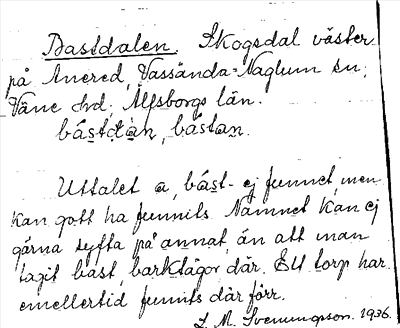 Bastdalen. Skogsdal väster
på Anered, Vassända-Naglum sn,
Väne hd, Älfsborgs län.
bástdàn, bástan.
Uttalet a, bást- ej funnet, men
kan gott ha funnits. Namnet kan ej
gärna syfta på annat än att man
tagit bast, barktågor, där. Ett torp har
emellertid funnits där förr.
S. M. Svenungson. 1936.